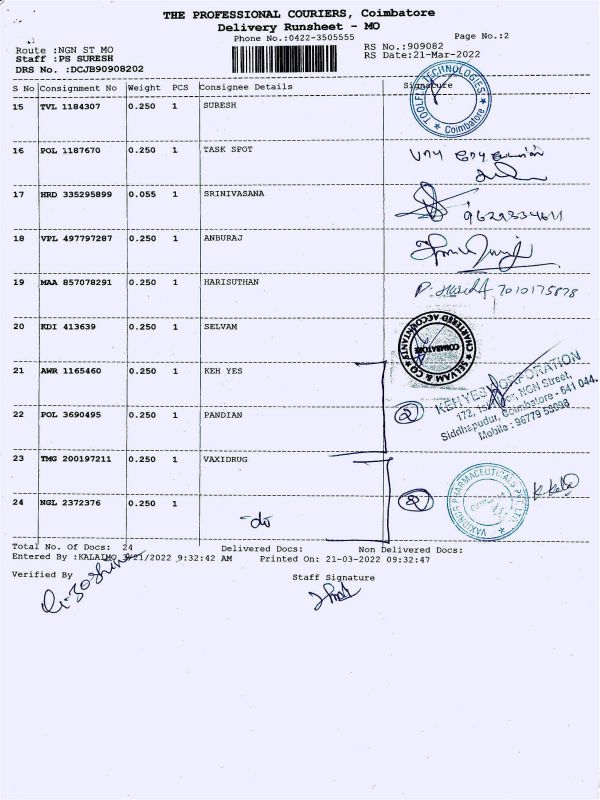 THE PROFESSIONAL COURIERS, Coimbatore
Delivery Runsheet - MO
Phone No.:0422-3505555
Page No.:2
Route :NGN ST MO
RS No.:909082
Staff :PS SURESH
RS Date:21-Mar-2022
DRS No. :DCJB90908202
S No Consignment No Weight PCS Consignee Details Signature
15 TVL 1184307 0.250 1 SURESH
TECHNOLOGIES
Coimbatore
16 POL 1187670 0.250 1 TASK SPOT
17 HRD 335295899 0.055 1 SRINIVASANA
9629334611
18 VPL 497797287 0.250 1 ANBURAJ
19 MAA 857078291 0.250 1 HARISUTHAN
7010175878
20 KDI 413639 0.250 1 SELVAM
SELVAM & CO
CHARTERED ACCOUNTANTS
COIMBATORE
21 AWR 1165460 0.250 1 KEH YES
KEH YES CORPORATION
NGN Street,
Siddhapudur, Coimbatore - 641 044.
Mobile : 96779 59098
22 POL 3690495 0.250 1 PANDIAN
2
23 TMG 200197211 0.250 1 VAXIDRUG
PHARMACEUTICALS PVT LTD
2
24 NGL 2372376 0.250 1
-do
Total No. Of Docs: 24 Delivered Docs: Non Delivered Docs:
Entered By :KALAIMO 3/21/2022 9:32:42 AM Printed On: 21-03-2022 09:32:47
Verified By
Staff Signature